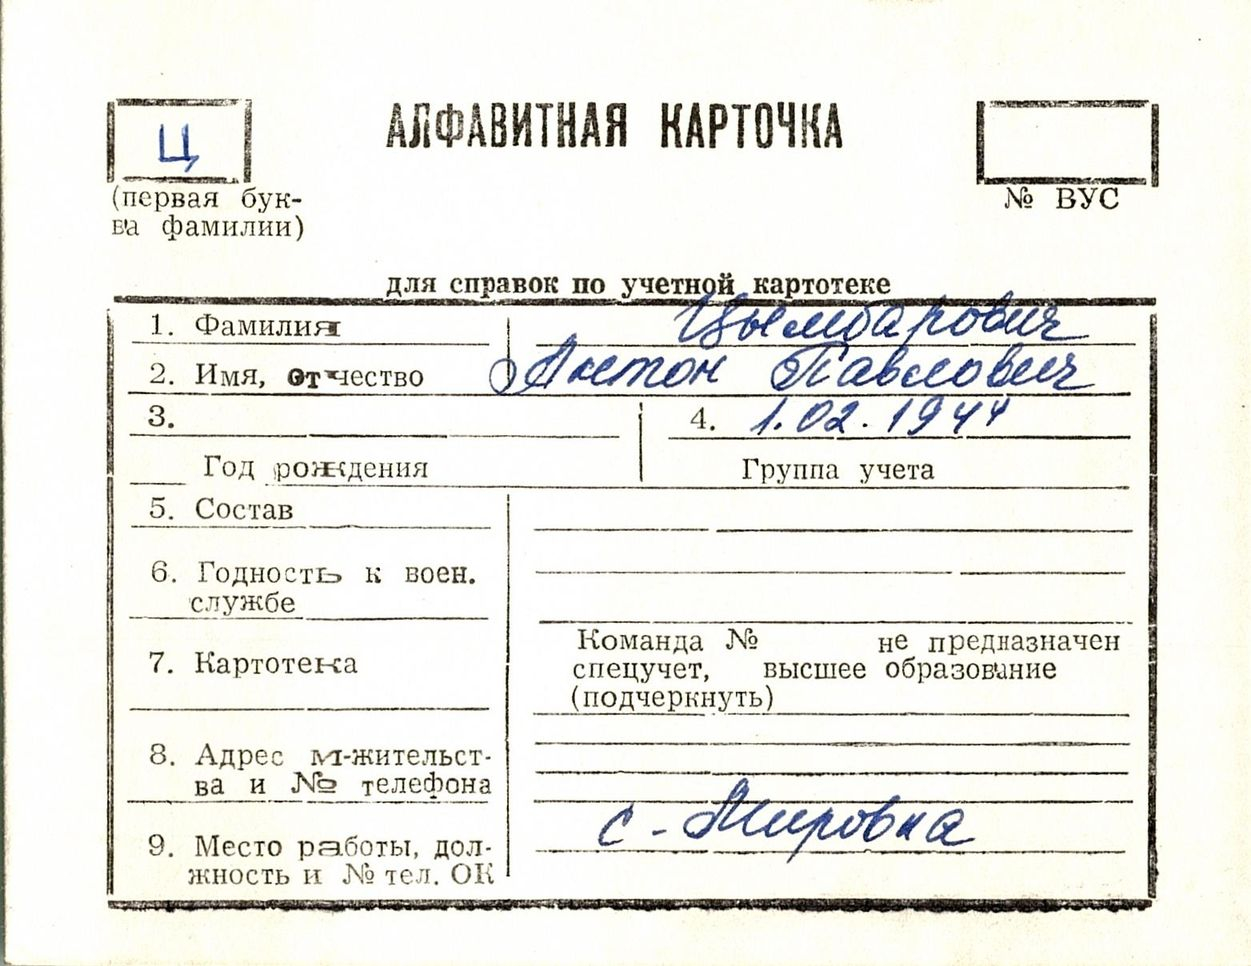 Ц
АЛФАВИТНАЯ КАРТОЧКА
(первая бук-
ва фамилии)
№ ВУС
для справок по учетной картотеке
1. Фамилия Цымбарович
2. Имя, отчество Антон Павлович
3. 4. 1.02.1944
Год рождения Группа учета
5. Состав
6. Годность к воен.
службе
7. Картотека
Команда № не предназначен
спецучет, высшее образование
(подчеркнуть)
8. Адрес м-жительст-
ва и № телефона
с. Мировка
9. Место работы, дол-
жность и № тел. ОК